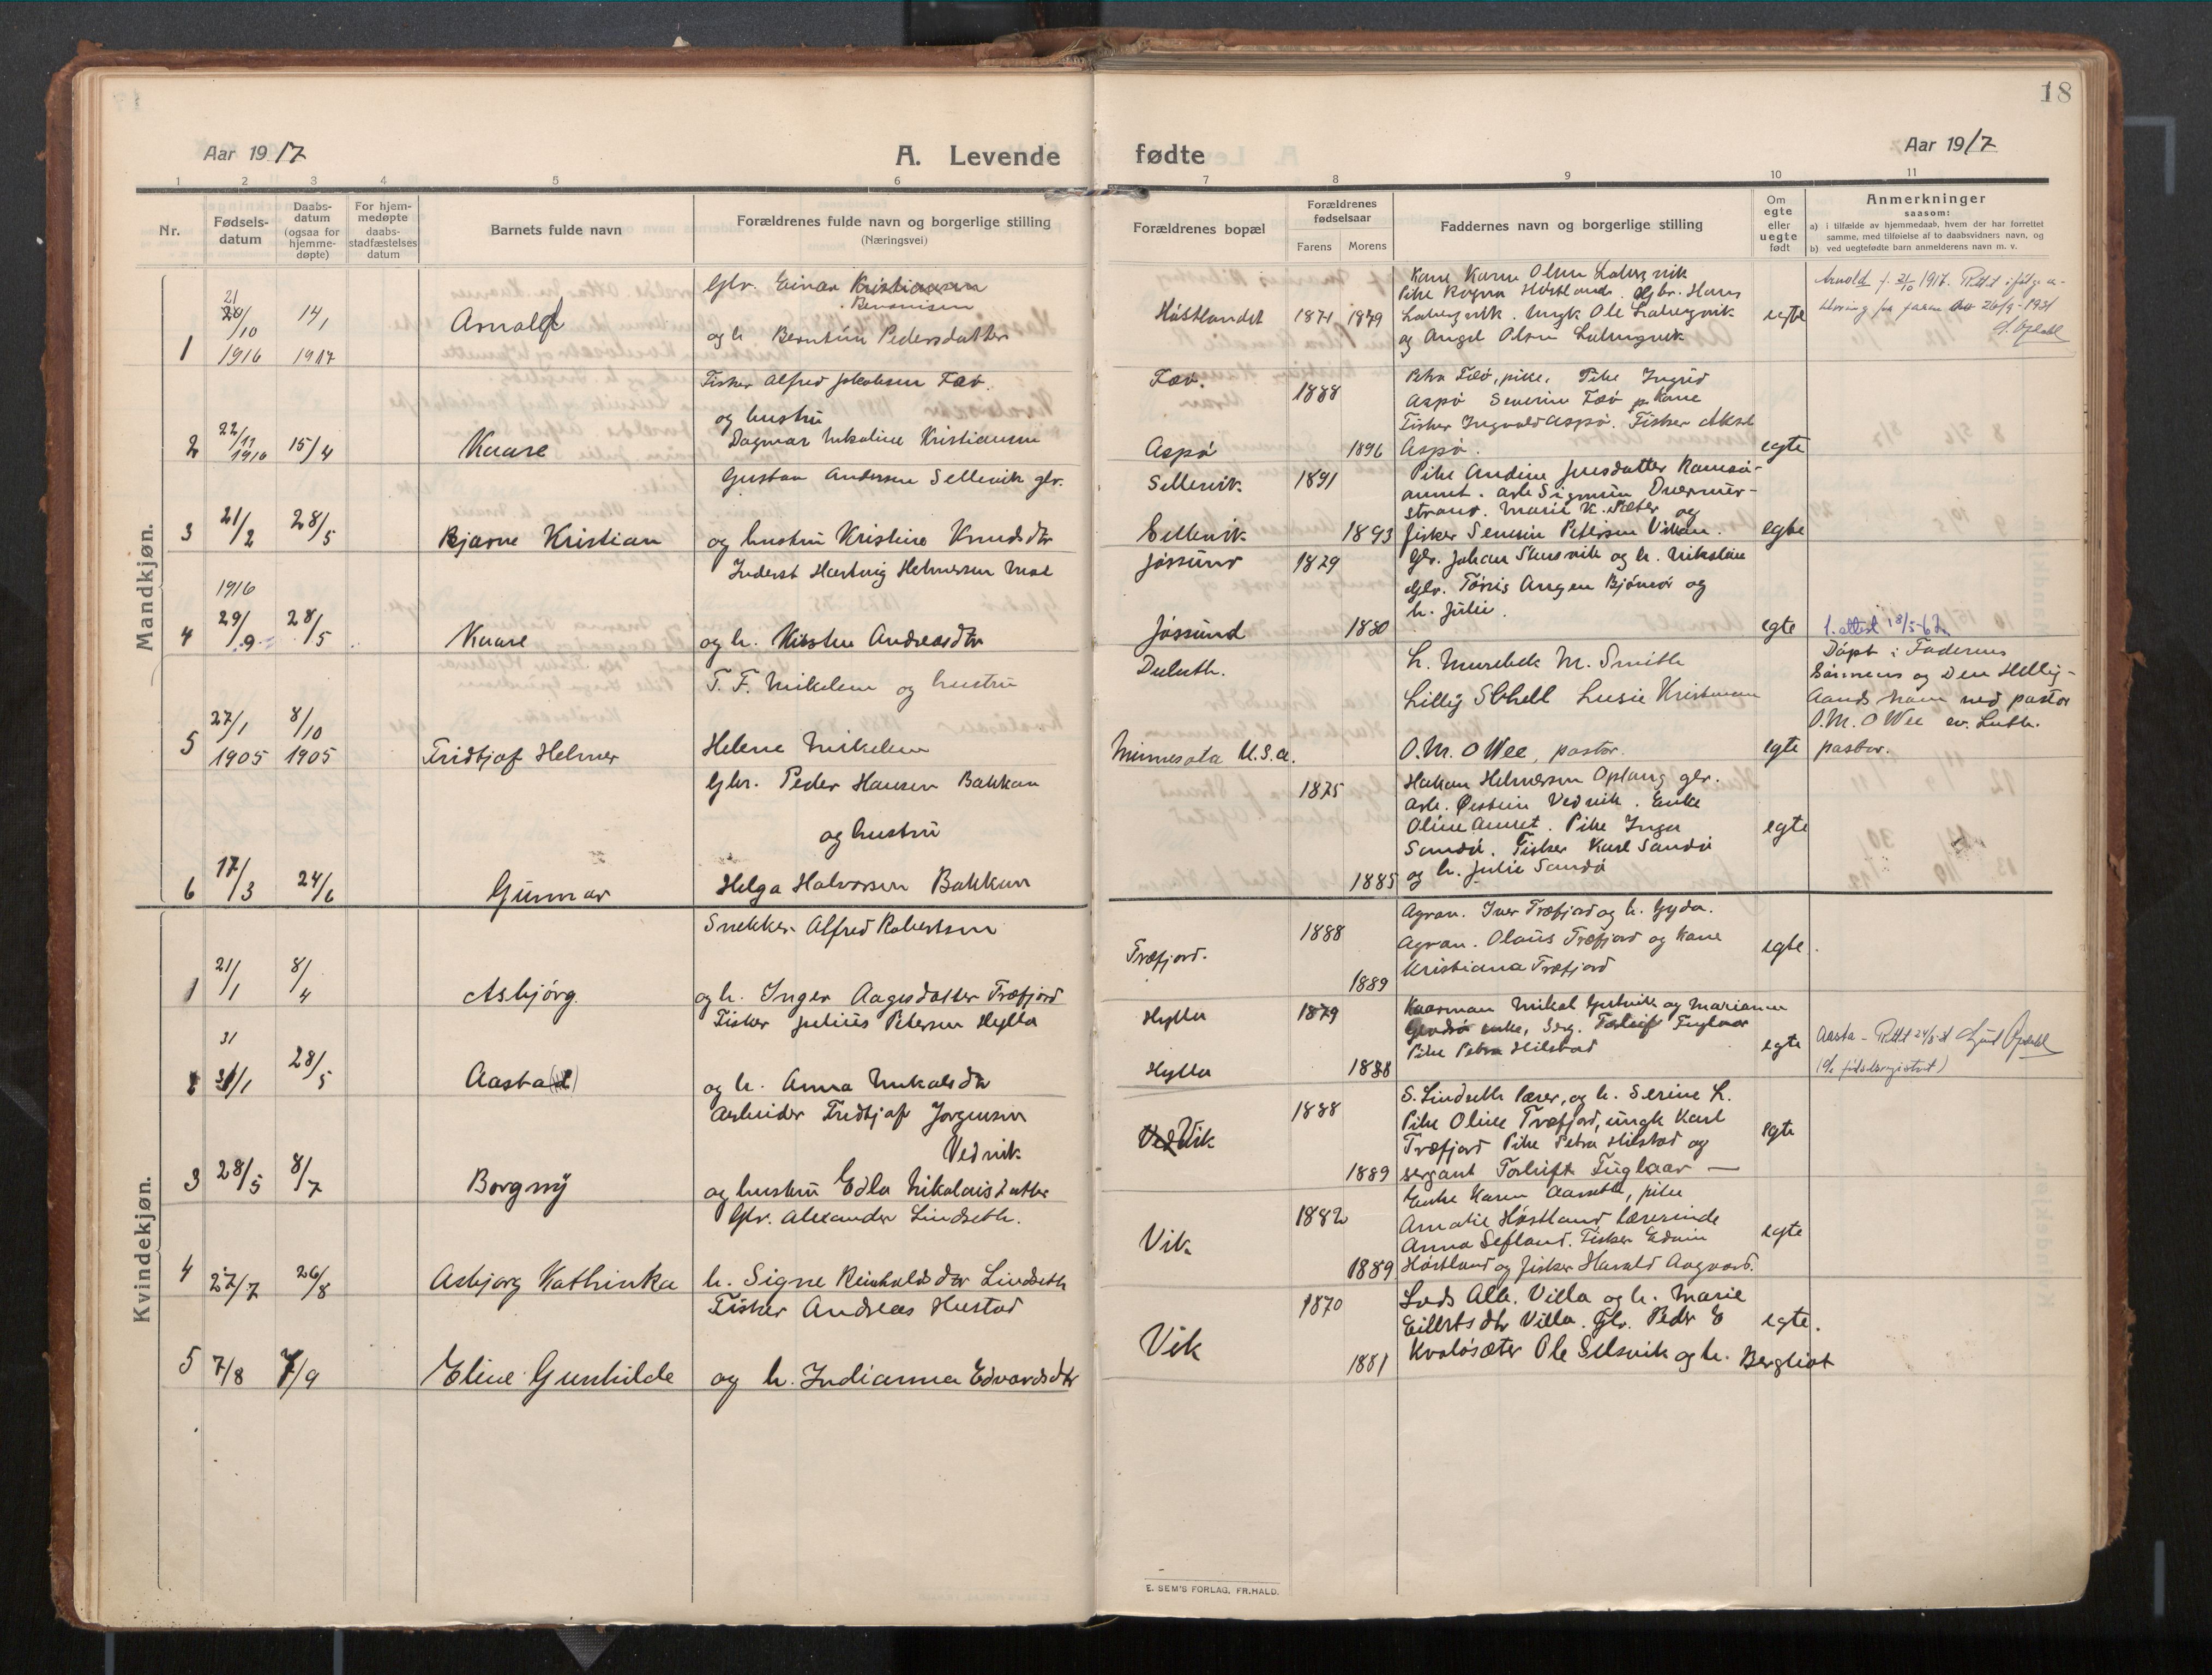 18
Aar 1917
A. Levende fødte
Aar 1917
1 2 3 4 5 6 7 8 9 10 11
Nr.
Fødsels-
datum
Daabs-
datum
(ogsaa for
hjemme-
døpte)
For hjem-
medøpte
daabs-
stadfæstelses
datum
Barnets fulde navn
Forældrenes fulde navn og borgerlige stilling
(Næringsvei)
Forældrenes bopæl
Forældrenes
fødselsaar
Farens Morens
Faddernes navn og borgerlige stilling
Om
egte
eller
uegte
født
Anmerkninger
saasom:
a) i tilfælde av hjemmedaab, hvem der har forrettet
samme, med tilføielse af to daabsvidners navn, og
b) ved uegtefødte barn anmelderens navn m. v.
Mandkjøn.
1
21
20/10
1916
14/1
1917
Arnold
Gbr. Einar Kristiansen
Benonisen
og h. Berntine Pedersdatter
Høstlandet
1871 1879
Kone Karen Olsen
Pike Ragna Høstland. Gbr. Hans
Ungk Ole
og Angel Olsen
egte
Arnold f. 21/10 1916. Rettet ifølge
fra faren 26/9-1931
2
22/11
1916
15/4
Kaare
Fisker Alfred Jakobsen Fæø.
og hustru
Dagmar Nikoline Kristiansen
Fæø.
Aspø
1888
1896
Petra Fæø, pike, Pike Ingrid
Aspø Severin Fæø Kone
Fisker Ingvald Aspø. Fisker Aksel
Aspø.
egte
3
21/2
28/5
Bjarne Kristian
Gustav Andersen Sellevik gbr.
og hustru Kristine Knudsdtr
Sellevik.
Sellevik
1891
1893
Pike Andine Jensdatter Ramsø-
annet. Arb. Sigmun
strand. Marie K. Sæter og
fisker Severin Petersen Vikan.
egte
4
1916
29/9
28/5
Kaare
Inderst Hartvig Helmersen Moe
og h. Kirsten Andreasdtr
Jøssund
Jøssund
1879
1880
Gbr. Johan Stensvik og h. Nikoline
Gbr. Tønis Angen Bjørnør og
h. Julie.
egte
1. attest 18/5-62
5
27/1
1905
8/10
1905
Fridtjof Helmer
T. F. Mikelsen og hustru
Helene Mikelsen
Duluth.
Minnesota U.S.A.
L. Murebek M. Smith
Lillig Schell Lusie Kristensen
O.M. O Wee, pastor.
egte
Døpt i Faderens
Sønnens og Den Hellig-
Aands navn ved pastor
O.M. O Wee ev. Luth.
pastor.
6
17/3
24/6
Gunnar
Gbr. Peder Hansen Bakkan
og hustru
Helga Halvorsen Bakkan
1875
1885
Hakon Helmersen Oplang gbr.
Arb. Øistein Vedvik. Enke
Oline Annet. Pike Inga
Sandø. Fisker Karl Sandø
og h. Julie Sandø
egte
Kvindekjøn.
1
21/1
8/4
Asbjørg.
Snekker Alfred Robertsen
og h. Inger Aagesdatter Træfjord
Træfjord.
1888
1889
Iver Træfjord og h. Gyda.
Olaus Træfjord og Kone
Kristiana Træfjord
egte.
2
31
31/1
28/5
Aasta
Fisker Julius Petersen Hylla
og h. Anna Nikolsdtr
Hylla
Hylla
1879
1888
Mikal og Marianne
enke, Serg. Torleif Fuglaar
Pike Petra Hilstad
egte
Aasta - Rettet 24/8-51 Opdahl
(cfr. fødselsregistret)
3
28/5
8/7
Borgny
Arbeider Fridtjof Jørgensen
Vedvik
og hustru Edla Nikolaisdatter
Vik
1888
1889
S. Lindseth lærer, og h. Serine L.
Pike Oline Træfjord, ungk Karl
Træfjord Pike Petra Hilstad og
sergant Torleif Fuglaar —
egte
4
27/7
26/8
Asbjørg Kathinka
Gbr. Alexander Lindseth.
h. Signe Reinholdsdtr Lindseth
Vik
1882
1889
Enke Karen Aarseth, pike
Amalie Høstland lærerinde
Anna Sefland. Fisker Edvin
Høstland og fisker Harald Aagvard.
egte
5
7/8
7/9
Eline Gunhilde
Fisker Andreas Hustad
og h. Indianna Edvardsdtr
Vik
1870
1881
Lods Alb. Villa og h. Marie
Eilertsdtr Villa. Gbr. Peder E
Kvaløsæter Ole Selsvik og h. Bergliot
egte.
E. SEM'S FORLAG, FR.HALD.